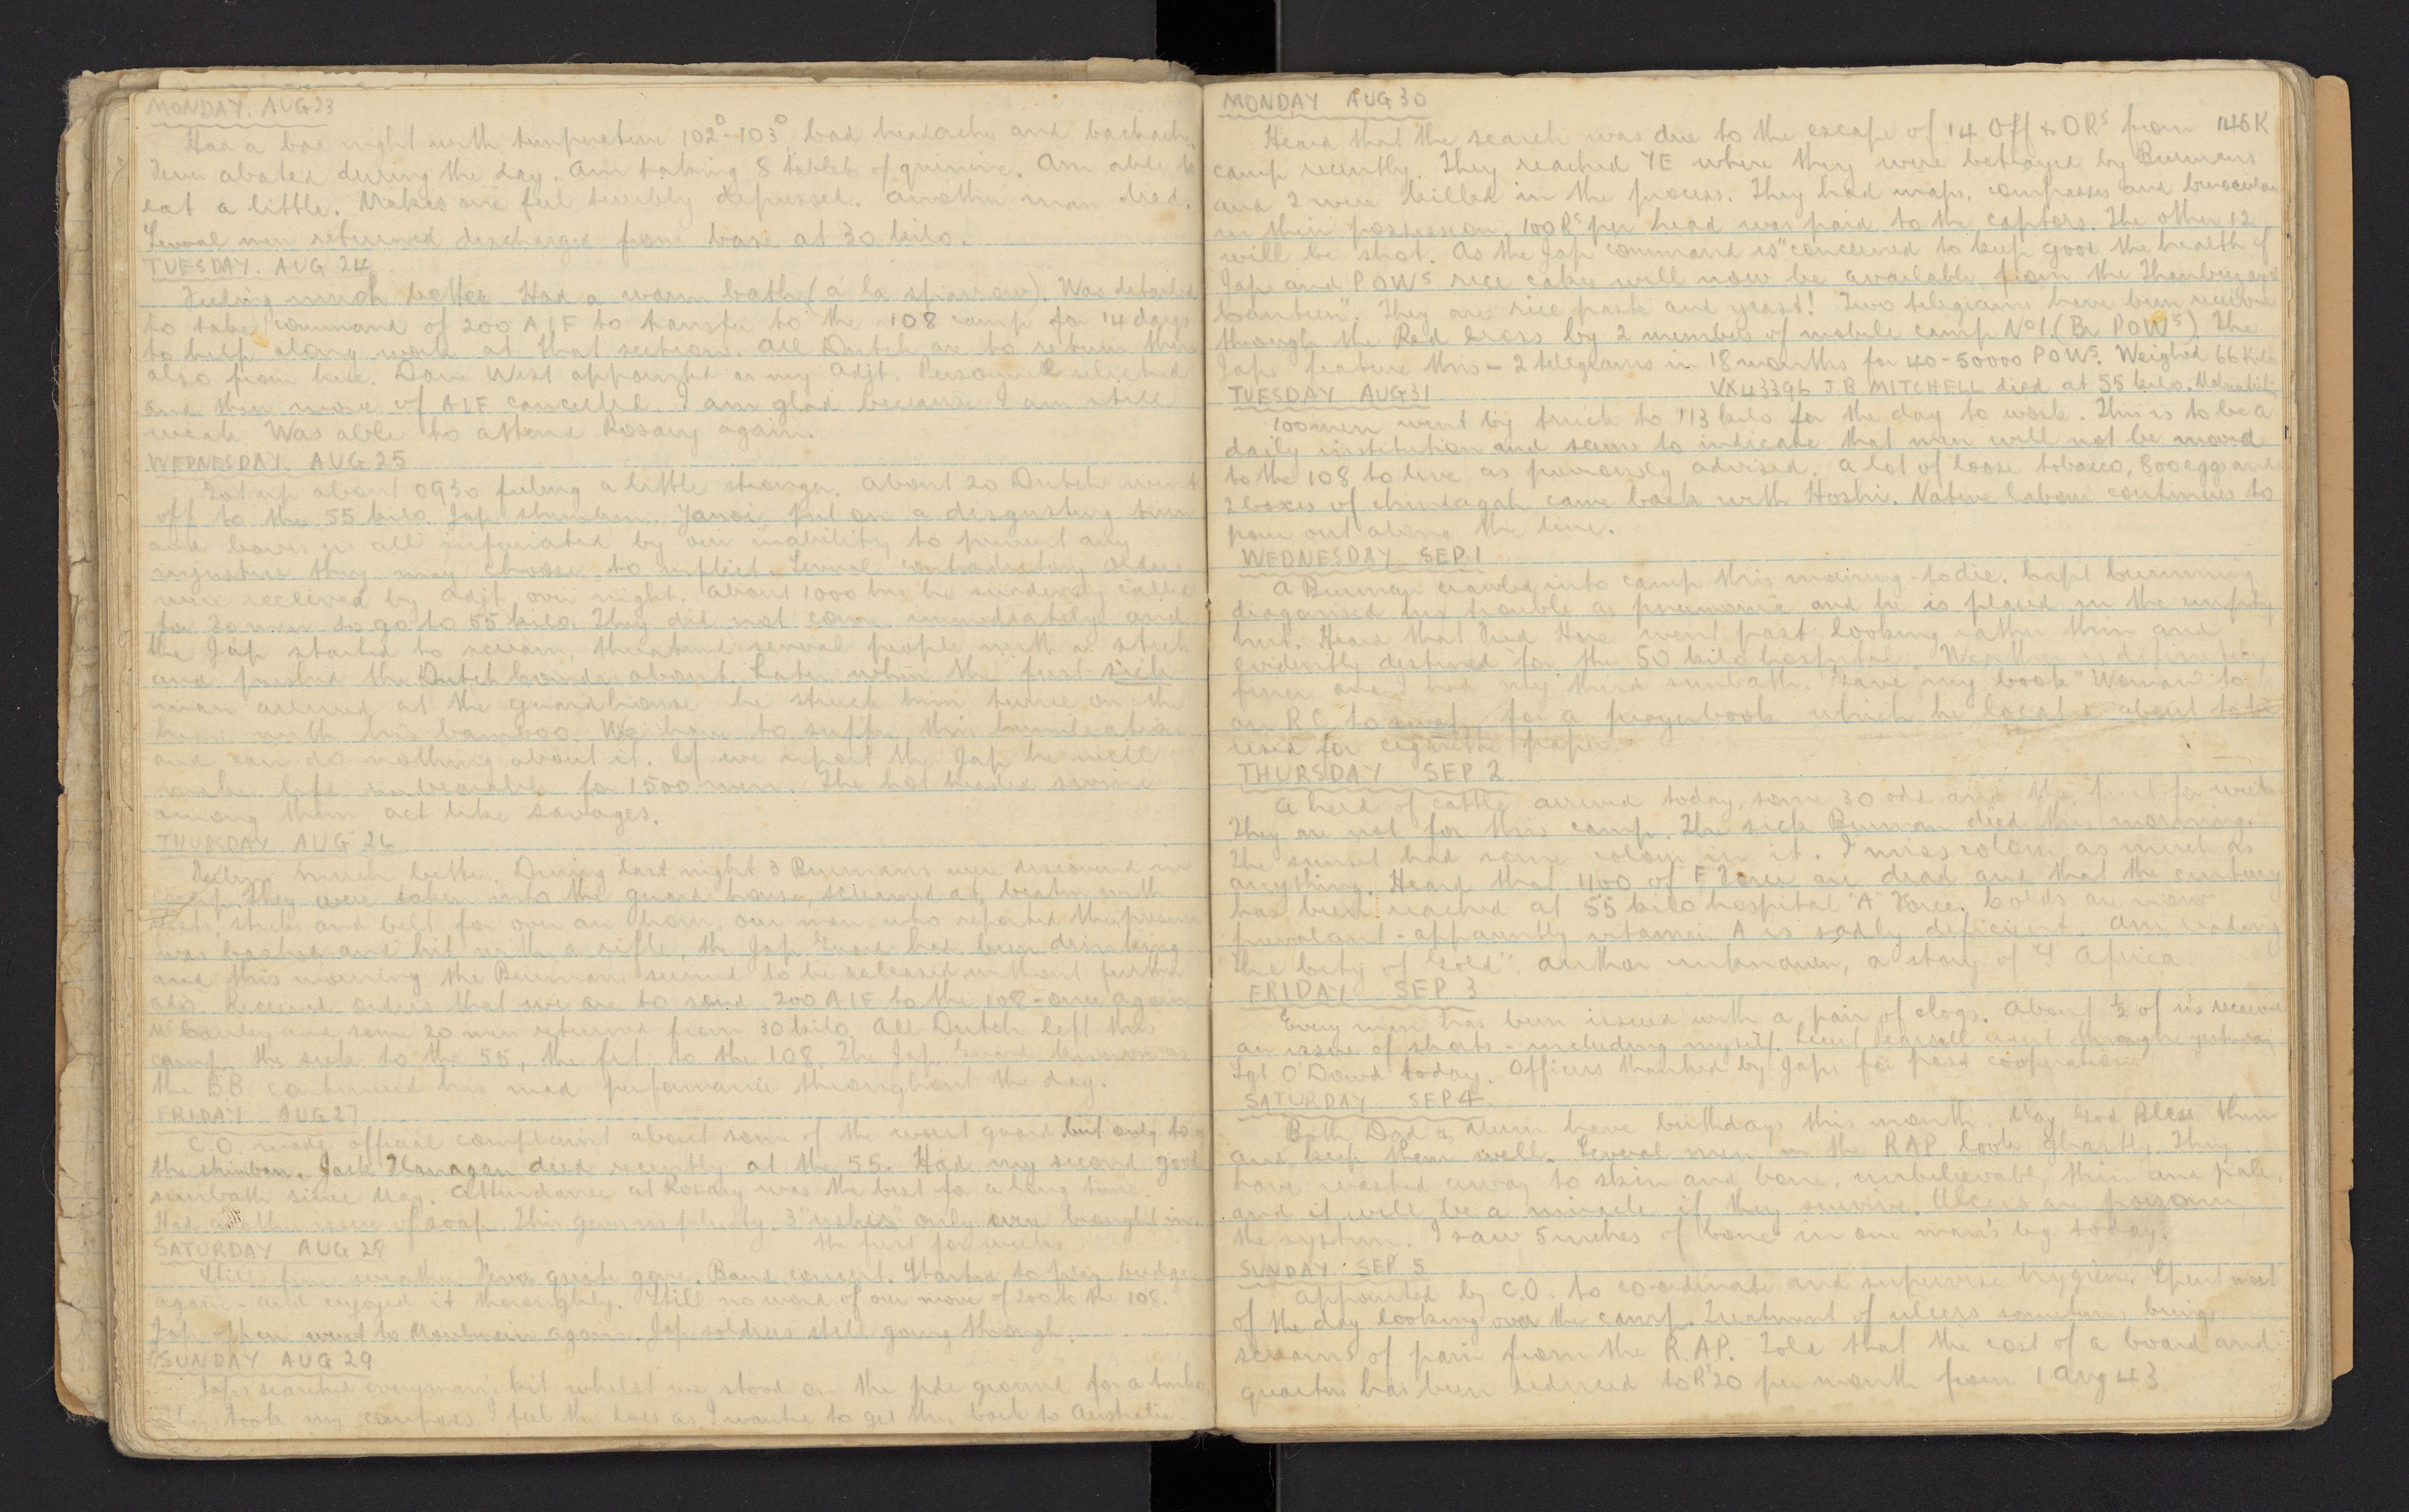 MONDAY. AUG 23
Had a bad night with temperature 102°-103° bad headache and backache.
Fever abated during the day. Am taking 8 tablets of quinine. Am able to
eat a little. Makes one feel terribly depressed. Another man died.
Several men returned discharged from base at 30 kilo.
TUESDAY. AUG 24
Feeling much better. Had a warm bath (a la sparrow). Was detailed
to take command of 200 AIF to transfer to the 108 camp for 14 days
to help along work at that section. All Dutch are to return there
also from here. Dave West appointed as my Adjt. Personnel selected
and then move of AIF cancelled. I am glad because I am still
weak. Was able to attend Rosary again.
WEDNESDAY. AUG 25
Got up about 0930 feeling a little stronger. About 20 Dutch went
off to the 55 kilo. Jap shimban. Yanoi, put on a disgusting turn
and leaves us all infuriated by our inability to prevent any
injustice they may choose to inflict. Several contradictory orders
were received by Adjt over night. About 1000 hrs he suddenly called
for 20 men to go to 55 kilo. They did not come immediately and
the Jap started to scream, threatened several people with a stick
and pushed the Dutch Comdr about. Later when the first sick
man arrived at the guardhouse he struck him twice on the
with his bamboo. We have to suffer this humiliation
and can do nothing about it. If we report the Jap he will
make life unbearable for 1500 men. The hot headed swine
among them act like savages.
THURSDAY AUG 26
Feeling much better. During last night 3 Burmans were discovered in
camp. They were taken into the guard house, screamed at, beaten with
fists, sticks and belt for over an hour. Our man who reported their presence
was bashed and hit with a rifle, the Jap Guard had been drinking
and this morning the Burmans seemed to be released without further
ado. Received orders that we are to send 200 AIF to the 108 - once again
McCauley and some 20 men returned from 30 kilo. All Dutch left this
camp, the sick to the 55, the fit to the 108. The Jap Guard known as
the B.B continued his mad performance throughout the day.
FRIDAY AUG 27
C.O. made official complaint about some of the worst guard but only to
the shimban. Jack Flanagan died recently at the 55. Had my second good
sunbath since May. Attendance at Rosary was the best for a long time.
Had another issue of soap. This gives us plenty. 3 "yaks" only were brought in
the first for weeks
SATURDAY AUG 28
Still fine weather. Fever quite gone. Band concert. Started to play bridge
again - and enjoyed it thoroughly. Still no word of our move of 200 to the 108.
Jap went to Moulmein again. Jap soldiers still going through.
SUNDAY AUG 29
Japs searched everyman's kit whilst we stood on the pde ground for a tenko.
They took my compass. I feel the loss as I wanted to get this back to Australia.
MONDAY AUG 30
Heard that the search was due to the escape of 14 Off & ORs from 145K
camp recently. They reached YE where they were betrayed by Burmans
and 2 were killed in the process. They had maps, compasses and binoculars
in their possession. 100 Rs per head was paid to the captors. The other 12
will be shot. As the Jap command is "concerned to keep good the health of
Japs and POWs rice cakes will now be available from the Thanbuzayat
Canteen". They are rice paste and yeast! Two telegrams have been received
through the Red Cross by 2 members of mobile camp No 1. (Br POWs). The
Japs feature this - 2 telegrams in 18 months for 40-50000 POWs. Weighed 66 kilos
VX43396 J B MITCHELL died at 55 kilo. Malnutrition
TUESDAY AUG 31
100 men went by truck to 113 kilo for the day to work. This is to be a
daily institution and seems to indicate that men will not be moved
to the 108 to live as previously advised. A lot of loose tobacco, 800 eggs and
2 boxes of chindagah came back with Hoshi. Native labour continues to
pour out along the line.
WEDNESDAY SEP 1
A Burman crawled into camp this morning - to die. Capt Cumming
diagnosed his trouble as pneumonia and he is placed in the empty
hut. Heard that Fred Hore went past looking rather thin and
evidently destined for the 50 kilo hospital. Weather is definitely
finer and I had my third sunbath. Gave my book "Woman" to
an R.C. to swap for a prayerbook which he located about to be
used for cigarette paper.
THURSDAY SEP 2
A herd of cattle arrived today, some 30 odd and the first for weeks
They are not for this camp. The sick Burman died this morning.
The sunset had some colour in it. I miss colour as much as
anything. Heard that 1100 of F Force are dead and that the century
has been reached at 55 kilo hospital "A" Force. Colds are now
prevalant - apparently vitamin A is sadly deficient. Am reading
"The City of Gold". Author unknown, a story of S Africa
FRIDAY SEP 3
Every man has been issued with a pair of clogs. About ½ of us received
an issue of shorts - including myself. Lieut Pearsall went through yesterday
Sgt O'Dowd today. Officers thanked by Japs for past cooperation.
SATURDAY SEP 4
Both Dad & Mum have birthdays this month. May God Bless them
and keep them well. Several men in the RAP look ghastly. They
have wasted away to skin and bone, unbelievably thin and pale,
and it will be a miracle if they survive. Ulcers are poisoning
the system. I saw 5 inches of bone in one man's leg today.
SUNDAY SEP 5
Appointed by C.O. to co-ordinate and supervise hygiene. Spent most
of the day looking over the camp. Treatment of ulcers sometimes brings
screams of pain from the R.A.P. Told that the cost of a board and
quarters has been reduced to Rs 20 per month from 1 Aug 43